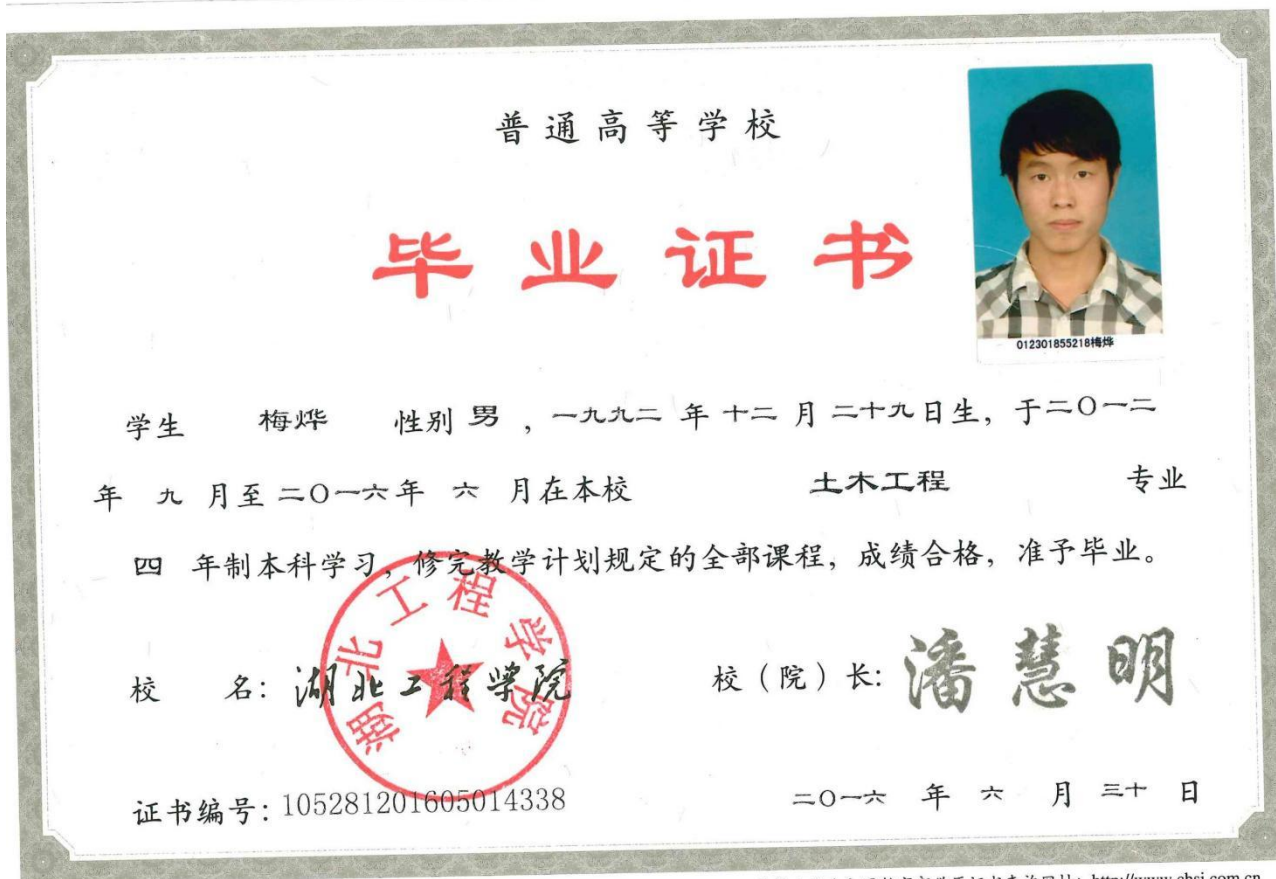 普通高等学校
毕业证书
012301855218梅烨
学生 梅烨 性别 男 ，一九九二 年 十二 月 二十九日生，于二〇一二
年 九 月至 二〇一六年 六 月在本校 土木工程 专业
四 年制本科学习，修完教学计划规定的全部课程，成绩合格，准予毕业。
湖北工程学院
校 名：湖北工程学院
校（院）长：潘慧明
证书编号：105281201605014338
二〇一六 年 六 月 三十 日
查询网址：http://www.chsi.com.cn